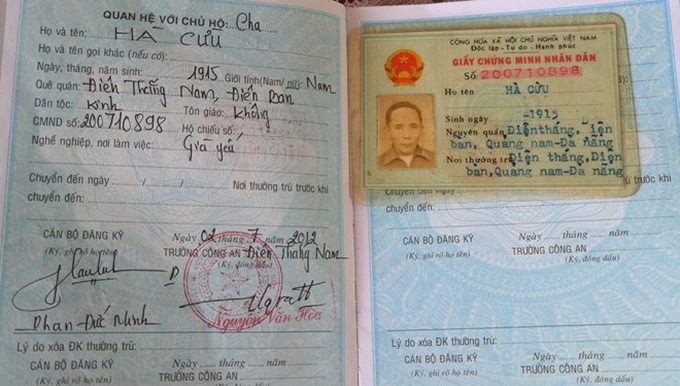 QUAN HỆ VỚI CHỦ HỘ: Cha
Họ và tên: HÀ CỬU
Họ và tên gọi khác (nếu có):
Ngày, tháng, năm sinh: 1915 Giới tính(Nam/ nữ): Nam
Quê quán: Điện Thắng Nam, Điện Bàn
Dân tộc: Kinh Tôn giáo: không
CMND số: 200710898 Hộ chiếu số:
Nghề nghiệp, nơi làm việc: Già yếu
Chuyển đến ngày ....../....../...... Nơi thường trú trước khi
chuyển đến:
CÁN BỘ ĐĂNG KÝ
(Ký, ghi rõ họ tên)
Ngày 02 tháng 7 năm 2012
TRƯỞNG CÔNG AN Điện Thắng Nam
(Ký, đóng dấu)
Phan Đức Minh
Nguyễn Văn Hòa
Lý do xóa ĐK thường trú:
CÁN BỘ ĐĂNG KÝ
(Ký, ghi rõ họ tên)
Ngày ...... tháng ...... năm ......
TRƯỞNG CÔNG AN
(Ký, đóng dấu)
CỘNG HÒA XÃ HỘI CHỦ NGHĨA VIỆT NAM
Độc lập - Tự do - Hạnh phúc
GIẤY CHỨNG MINH NHÂN DÂN
Số 200710898
Họ tên HÀ CỬU
Sinh ngày -1915
Nguyên quán Điện thắng, iện
bàn, Quảng nam-Đà nẵng
Nơi thường trú Điện thắng, Điện
bàn, Quảng nam-Đà nẵng
Chuyển đến ngày
trú trước khi
chuyển đến:
CÁN BỘ ĐĂNG KÝ
(Ký, ghi rõ họ tên)
Ngày ...... tháng ...... năm ......
TRƯỞNG CÔNG AN
(Ký, đóng dấu)
Lý do xóa ĐK thường trú:
CÁN BỘ ĐĂNG KÝ
(Ký, ghi rõ họ tên)
Ngày ...... tháng ...... năm ......
TRƯỞNG CÔNG AN
(Ký, đóng dấu)